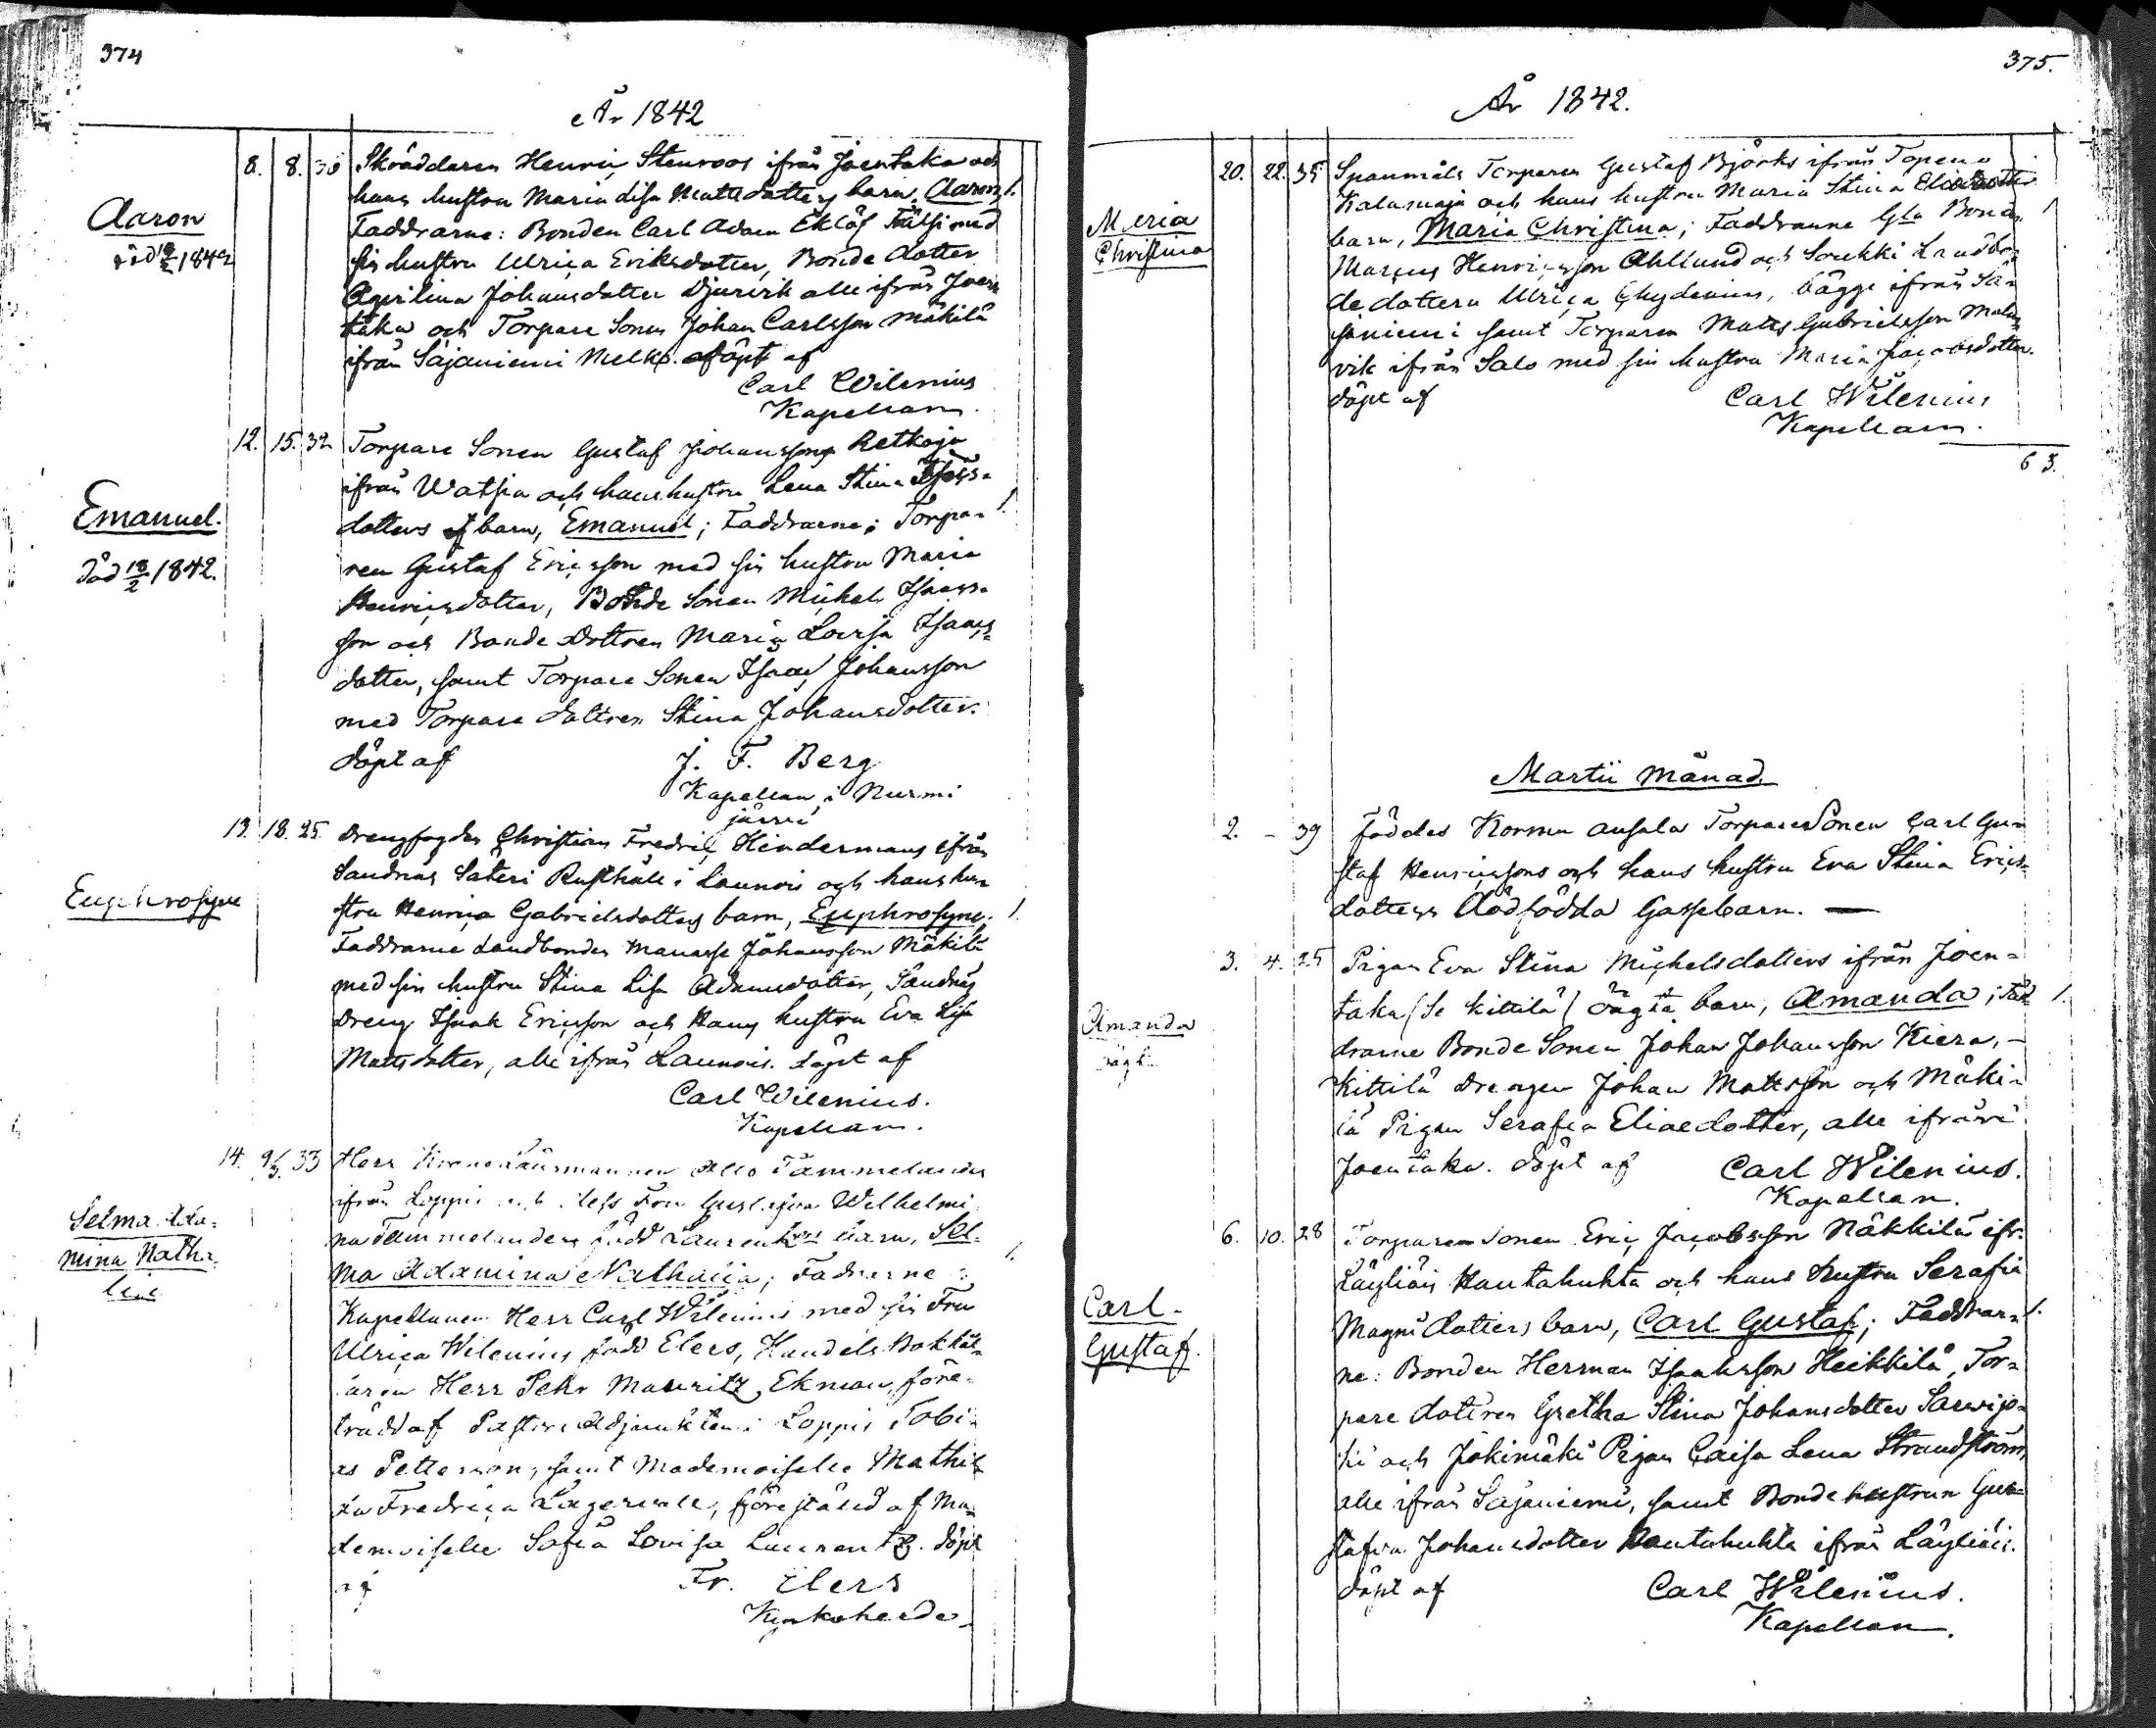 374
År 1842
8. 8. 30 Skräddaren Henric Stenroos ifrån Joentaka och
hans hustru Maria Lisa Mattsdotters barn, Aaron,
Aaron
död 18/2 1842
Faddrarne: Bonden Carl Adam Eklöf Tälsi med
sin hustru Ulrica Eriksdotter, Bonde dotter
Johansdotter alle ifrån Joen
taka och Torpare Sonen Johan Carlsson Mäkilä
ifrån Sajaniemi döpt af
Carl Wilenius
Kapellan.
12. 15. 32 Torpare Sonen Gustaf Johanssons Retkoja
ifrån Watsia och hans hustru Lena Stina Isaacs-
dotters barn, Emanuel; Faddrarne; Torpa- 1.
Emanuel.
död 18/2 1842.
ren Gustaf Ericsson med sin hustru Maria
Henricsdotter, Bonde Sonen Michel Isaacs-
son och Bonde Dottren Maria Lovisa Isaacs-
dotter, samt Torpare Sonen Isaac Johansson
med Torpare dottren Stina Johansdotter.
döpt af J. F. Berg
Kapellan i Nurmi
järvi
13. 18. 25. Drengfogden Christian Fredric Hindermans ifrån
Sandnäs Säteri Rusthåll i Launois och hans hu-
Euphrosyne
stru Henrica Gabrielsdotters barn, Euphrosyne. 1.
Faddrarne Landbonden Manasse Johansson Mäkilä
med sin hustru Stina Lisa Adamsdotter, Sandnäs
Dreng Isaak Ericsson och Hans hustru Eva Lisa
Mattsdotter, alle ifrån Launois. döpt af
Carl Wilenius.
Kapellan.
14. 9/3. 33 Herr Krono Länsmannen Tammelanders
ifrån Loppis och dess Fru Gustafva Wilhelmi
na Tammelanders född Laurentz's barn, Sel-
Selma Ada-
mina Natha-
lia
ma Adamina Nathalia; Fadrarne: 1.
Kapellanen Herr Carl Wilenius med sin Fru
Ulrica Wilenius född Elers, Handels Bokhål-
laren Herr Pehr Mauritz Ekman, före-
trädd af Pastors Adjunkten i Loppis Tobi-
as Petterson, samt Mademoiselle Mathil
da Fredrica, företräd af Ma-
demoiselle Sofia Lovisa Laurentz. döpt
af Fr. Elers
Kyrkoherde
375.
År 1842.
20. 22. 35 Spanmåls Torparen Gustaf Björks ifrån Topeno
Kalamaja och hans hustru Maria Stina Eliaedotters
Maria
Christina
barn, Maria Christina; Faddrarne Gla Bonden 1
Marcus Henricsson Ahllund och Soukki Landbon
dedottern Ulrica Chydenius, bägge ifrån Sa-
janiemi samt Torparen Matts Gabrielsson Malm
vik ifrån Salo med sin hustru Maria Jacobsdotter.
döpt af Carl Wilenius
Kapellan.
63.
Martii månad.
2. - 39 Föddes Kormu ansala Torpare Sonen Carl Gu-
staf Henricssons och hans hustru Eva Stina Erics-
dotters Dödfödda Gossebarn. —
3. 4. 25 Pigan Eva Stina Michelsdotters ifrån Joen-
taka (Se Kittilä) oägta barn, Amanda; Fad 1.
Amanda
oägt.
drarne Bonde Sonen Johan Johansson Kiera, -
Kittilä Drengen Johan Mattsson och Mäki-
lä Pigan Serafia Eliaedotter, alle ifrån
Joentaka. döpt af Carl Wilenius.
Kapellan.
6. 10. 28 Torpare Sonen Eric Jacobsson Näkkilä ifr.
Läyliäis Hautahuhta och hans hustru Serafia
Carl
Gustaf.
Magnidotters barn, Carl Gustaf; Faddrar- 1.
ne: Bonden Herman Isaaksson Heikkilä, Tor-
pare dottren Gretha Stina Johansdotter Sarvijo-
ki och Jokimäki Pigan Caisa Lena Strandström,
alle ifrån Sajaniemi, samt Bonde hustrun Gus-
stafva Johansdotter Hautahuhta ifrån Läyliäis.
döpt af Carl Wilenius.
Kapellan.